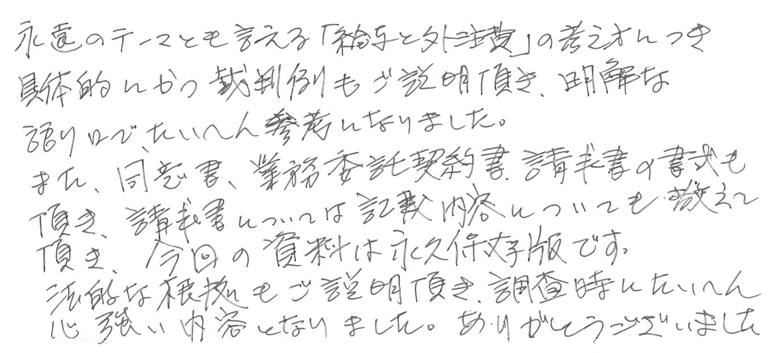 永遠のテーマとも言える「給与と外注費」の考え方につき
具体的にかつ裁判例もご説明頂き、明解な
語り口で、たいへん参考になりました。
また、同意書、業務委託契約書、請求書の書式も
頂き、請求書については記載内容についても教えて
頂き、今回の資料は永久保存版です。
法的な根拠もご説明頂き、調査時にたいへん
心強い内容となりました。ありがとうございました